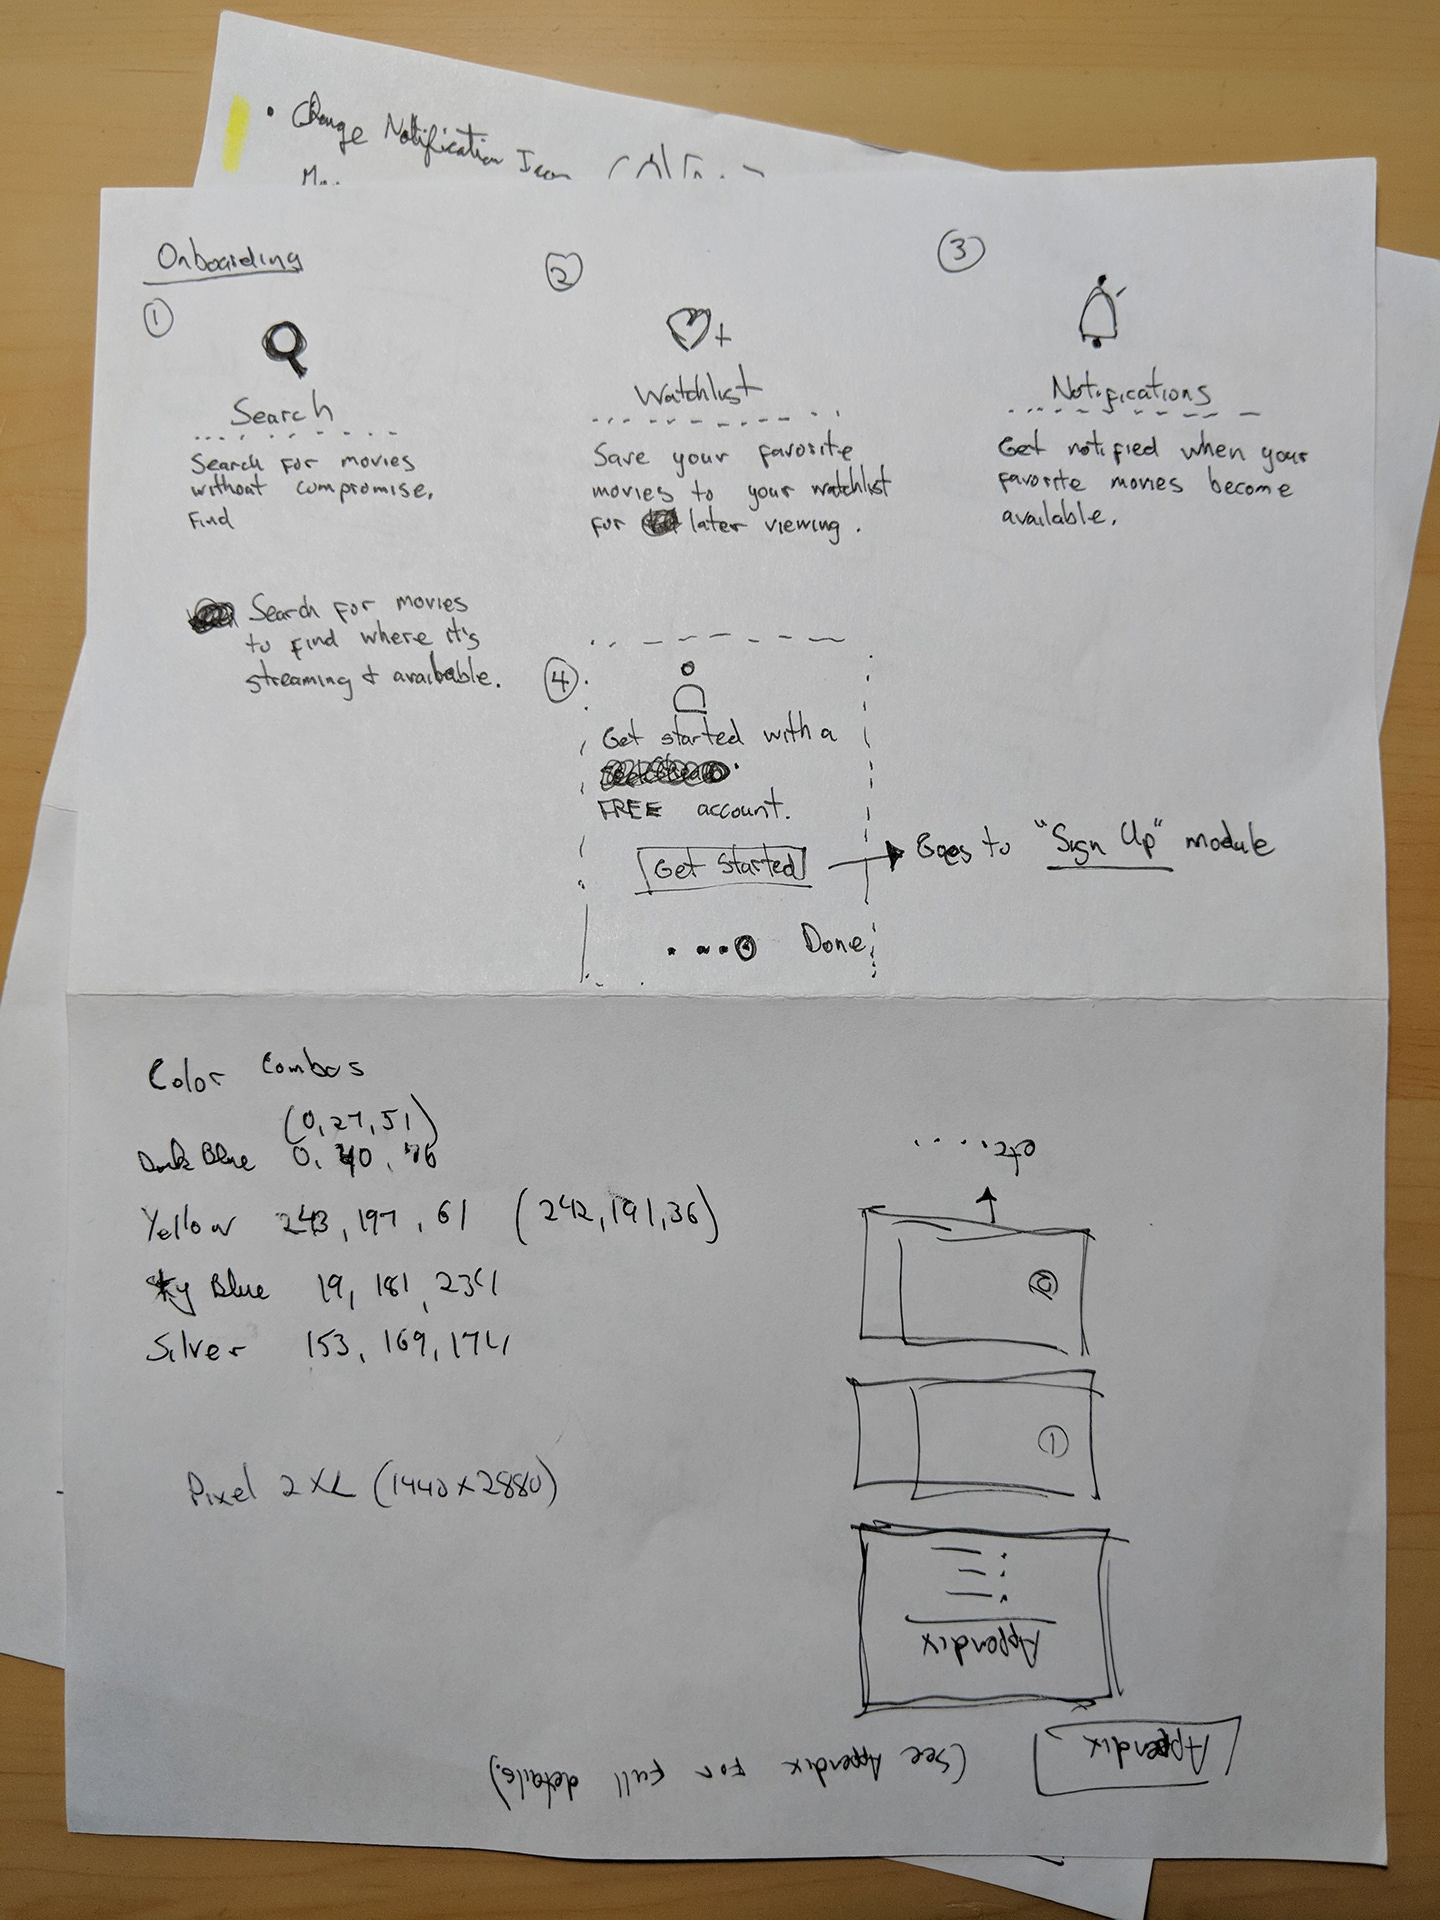 • Change Notification Icon
Onboarding
1
Search
Search for movies
without compromise.
Find
Search for movies
to find where it's
streaming & available.
2
Watchlist
Save your favorite
movies to your watchlist
for later viewing.
3
Notifications
Get notified when your
favorite movies become
available.
4
Get started with a
FREE account.
Get Started
Goes to "Sign Up" module
Done
Color Combos
(0,27,51)
Dark Blue 0, 40, 76
Yellow 243, 197, 61 (242,191,36)
Sky Blue 19, 181, 234
Silver 153, 169, 174
Pixel 2 XL (1440x2880)
Appendix
(See Appendix for full details)
Appendix
1
2
etc....